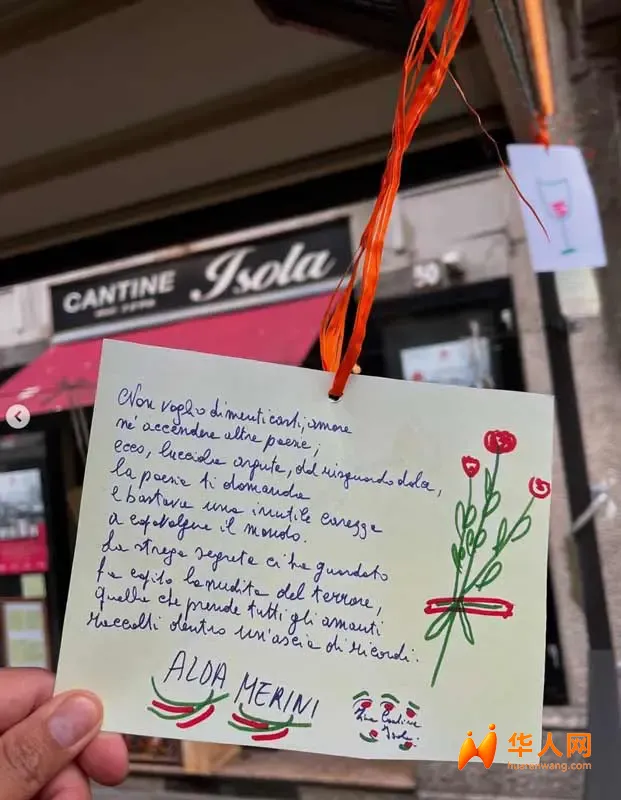 CANTINE
Isola
50
Non voglio dimenticarti, amore
né accendere altre poesie;
ecco, lucciola arguta, dal risguardo dolce,
la poesia ti domanda
e bastava una inutile carezza
a capovolgere il mondo.
La strega segreta ci ha guardato
ha capito la nudità del terrore,
quella che prende tutti gli amanti
raccolti dentro un'ascia di ricordi.
ALDA MERINI
Cantine
Isola
华人网
huarenwang.com